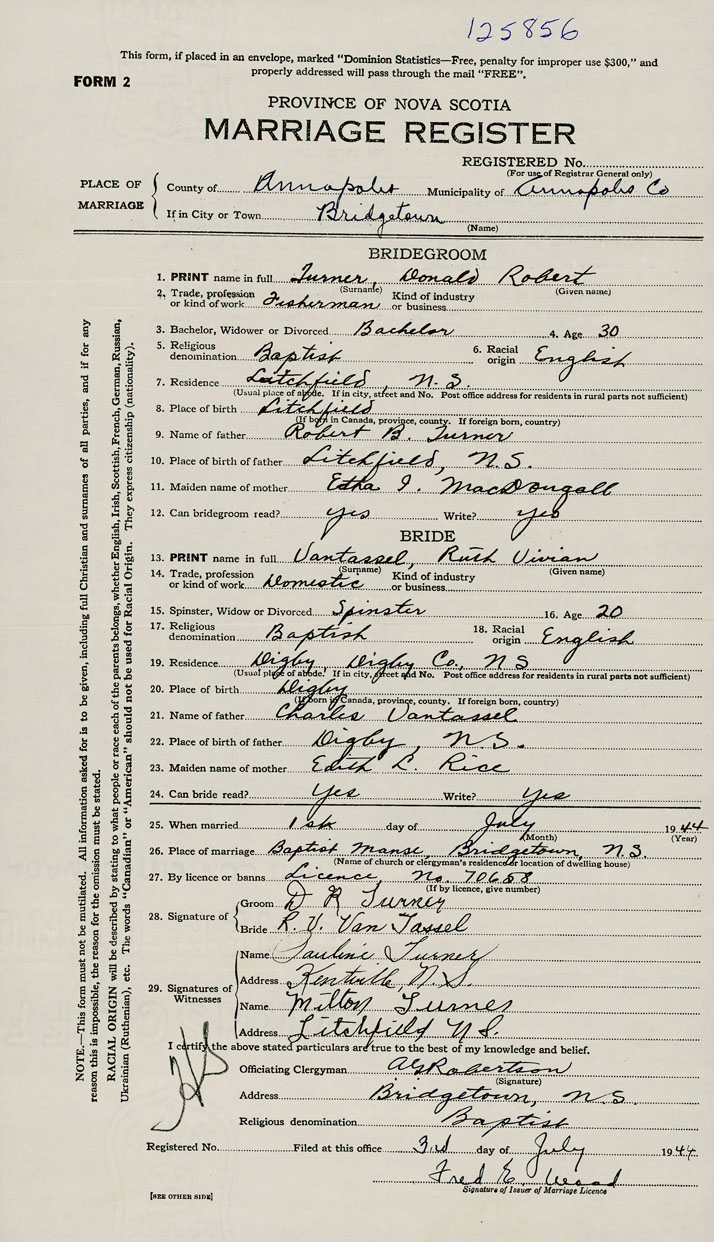 125856
This form, if placed in an envelope, marked “Dominion Statistics—Free, penalty for improper use $300,” and
properly addressed will pass through the mail “FREE”.
FORM 2
PROVINCE OF NOVA SCOTIA
MARRIAGE REGISTER
REGISTERED No.
(For use of Registrar General only)
PLACE OF MARRIAGE
County of Annapolis Municipality of Annapolis Co
If in City or Town Bridgetown
(Name)
BRIDEGROOM
1. PRINT name in full Turner, Donald Robert
(Surname) (Given name)
2. Trade, profession or kind of work Fisherman Kind of industry or business
3. Bachelor, Widower or Divorced Bachelor 4. Age 30
5. Religious denomination Baptist 6. Racial origin English
7. Residence Litchfield, N.S.
(Usual place of abode. If in city, street and No. Post office address for residents in rural parts not sufficient)
8. Place of birth Litchfield
(If born in Canada, province, county. If foreign born, country)
9. Name of father Robert B. Turner
10. Place of birth of father Litchfield, N.S.
11. Maiden name of mother Etha I. MacDougall
12. Can bridegroom read? yes Write? yes
BRIDE
13. PRINT name in full Vantassel, Ruth Vivian
(Surname) (Given name)
14. Trade, profession or kind of work Domestic Kind of industry or business
15. Spinster, Widow or Divorced Spinster 16. Age 20
17. Religious denomination Baptist 18. Racial origin English
19. Residence Digby, Digby Co., N S
(Usual place of abode. If in city, street and No. Post office address for residents in rural parts not sufficient)
20. Place of birth Digby
(If born in Canada, province, county. If foreign born, country)
21. Name of father Charles Vantassel
22. Place of birth of father Digby, N.S.
23. Maiden name of mother Edith L. Rice
24. Can bride read? Yes Write? Yes
25. When married 1st day of July 1944
(Month) (Year)
26. Place of marriage Baptist Manse, Bridgetown, N.S.
(Name of church or clergyman's residence or location of dwelling house)
27. By licence or banns Licence, No. 70658
(If by licence, give number)
28. Signature of
Groom D R Turner
Bride R. V. Van Tassel
29. Signatures of Witnesses
Name Pauline Turner
Address Kentville, N.S.
Name Milton Turner
Address Litchfield N.S.
I certify the above stated particulars are true to the best of my knowledge and belief.
Officiating Clergyman A G Robertson
(Signature)
Address Bridgetown, N.S.
Religious denomination Baptist
Registered No. Filed at this office 3rd day of July 1944
Fred E. Wood
Signature of Issuer of Marriage Licence
[SEE OTHER SIDE]
NOTE.—This form must not be mutilated. All information asked for is to be given, including full Christian and surnames of all parties, and if for any
reason this is impossible, the reason for the omission must be stated.
RACIAL ORIGIN will be described by stating to what people or race each of the parents belongs, whether English, Irish, Scottish, French, German, Russian,
Ukrainian (Ruthenian), etc. The words “Canadian” or “American” should not be used for Racial Origin. They express citizenship (nationality).